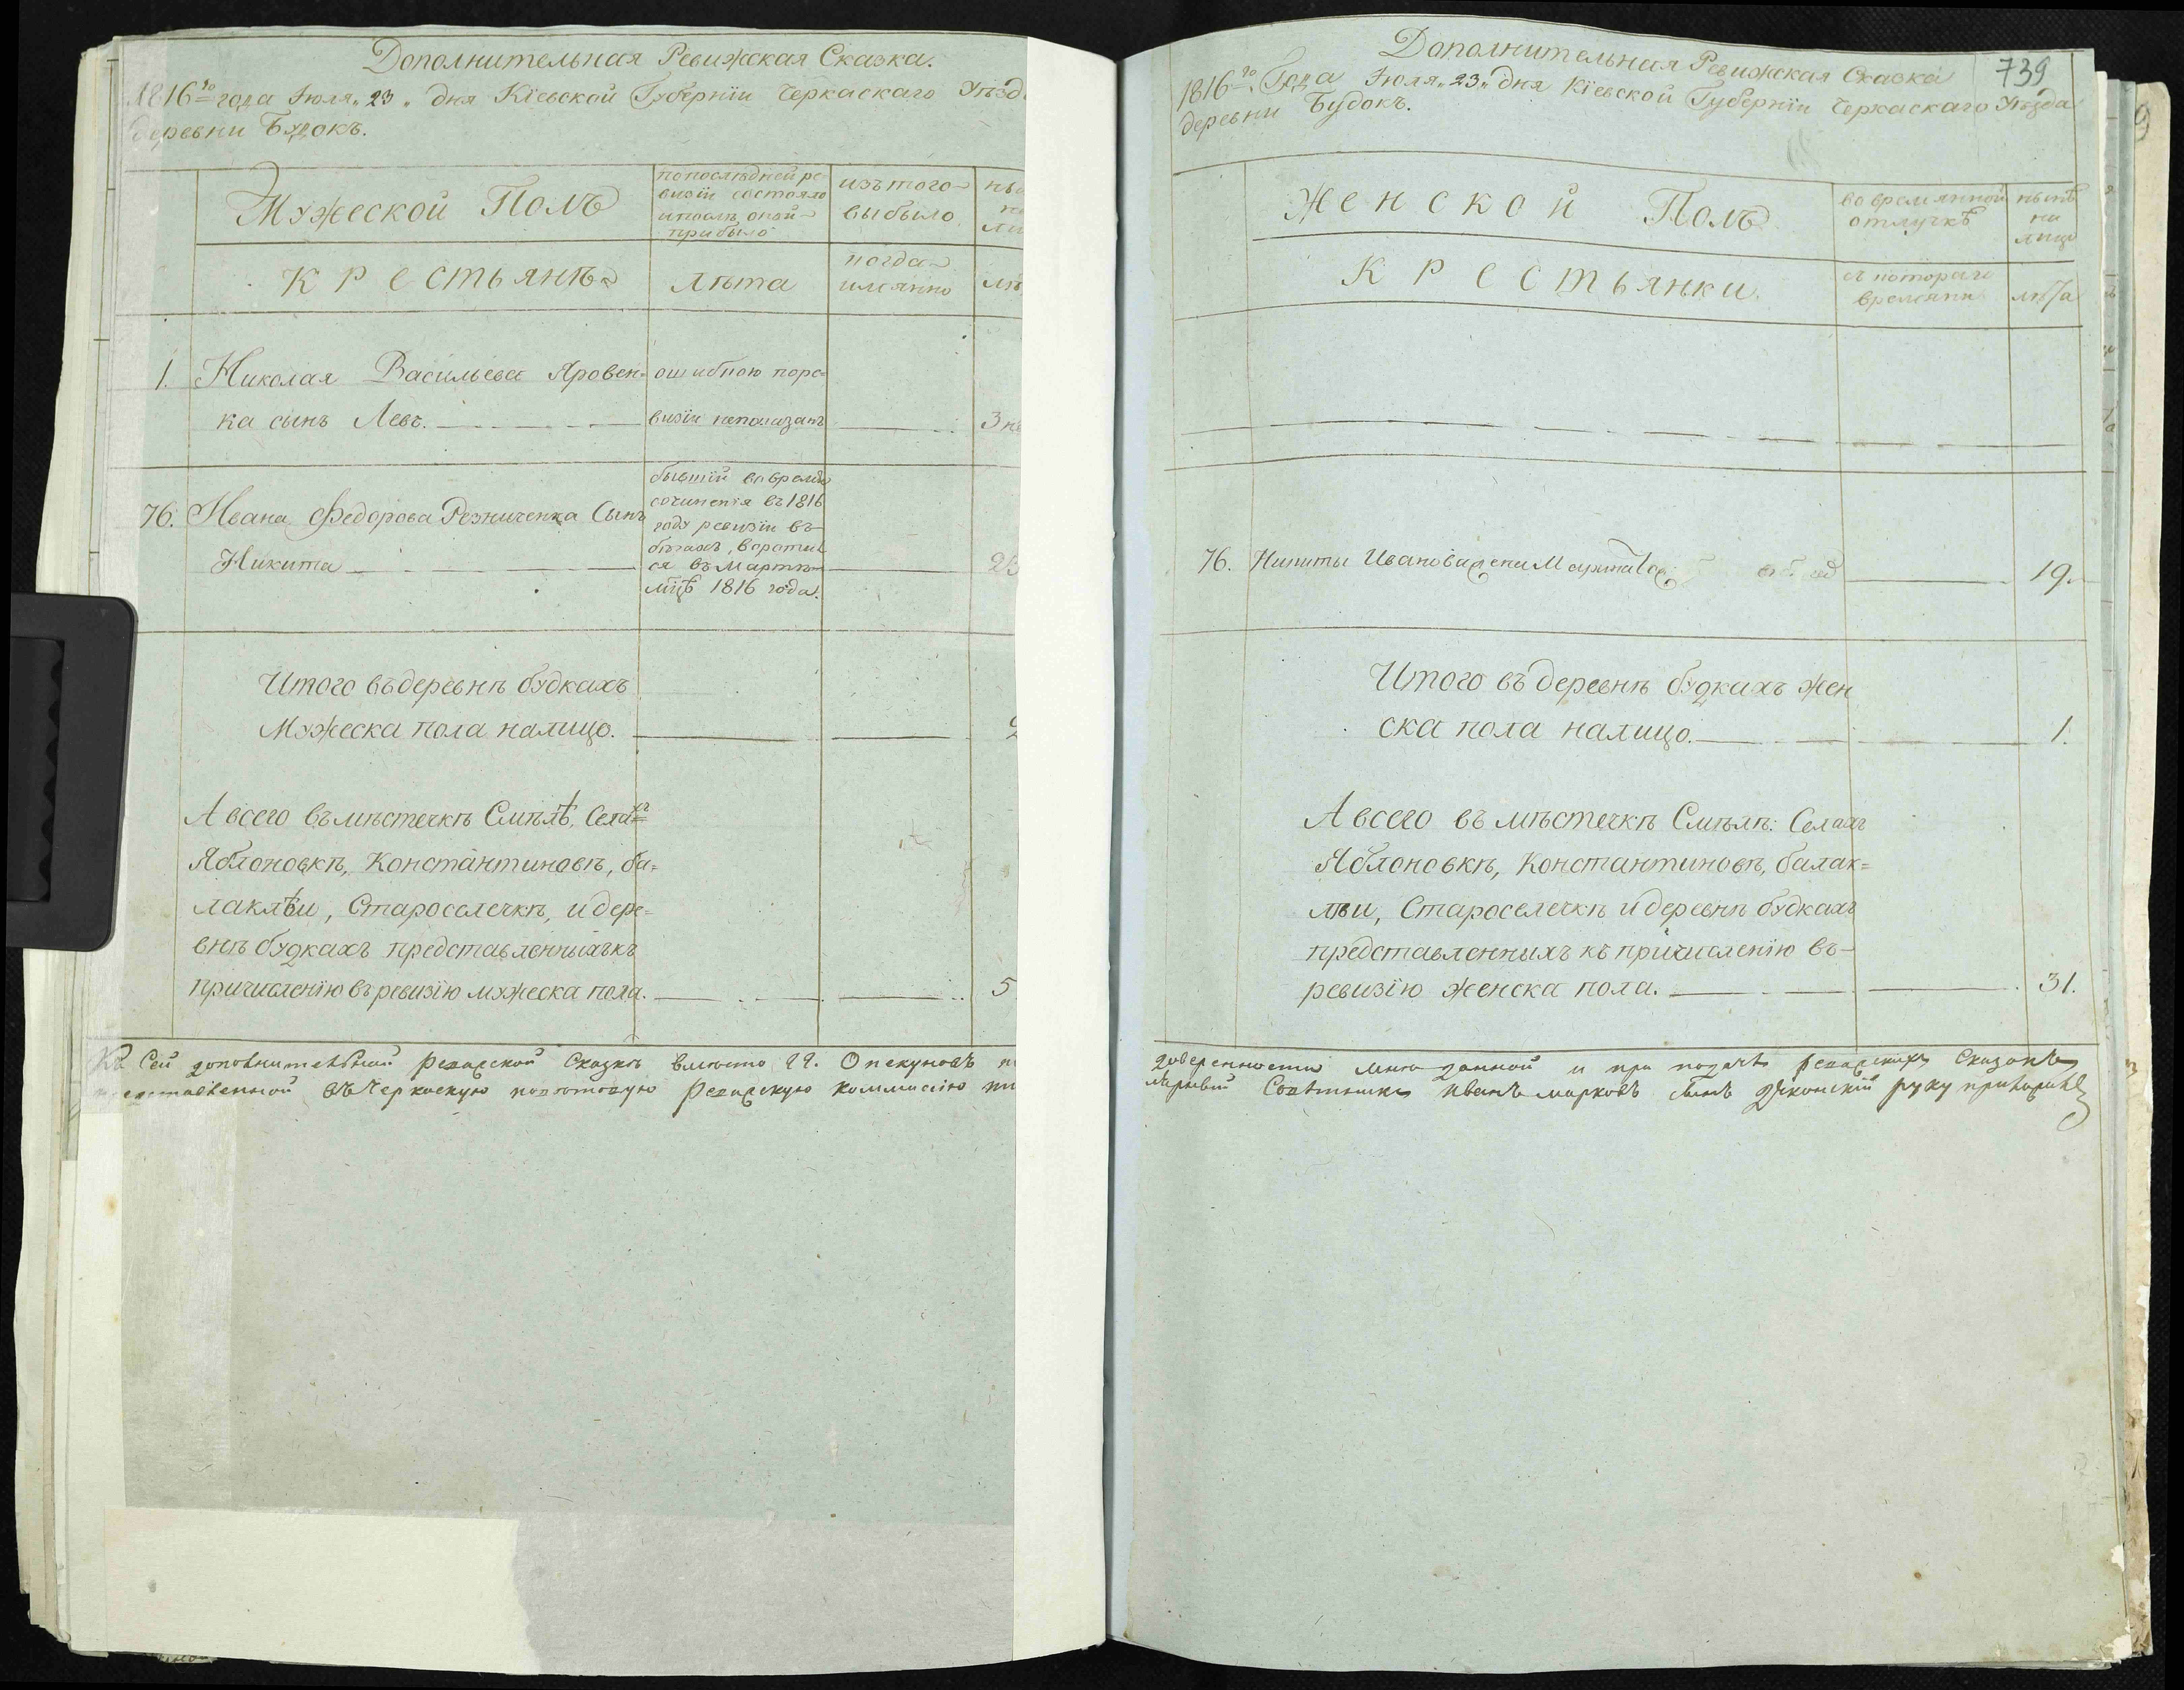 Дополнительная Ревижская Сказка.
1816го года Июля „23„ дня Кіевской Губерніи Черкаскаго Уѣзд
деревни Будокъ.
Мужеской Полъ
попослѣдней ре-
визіи состояло
ипослѣ оной
прибыло
изътого
выбыло
Крестьянѣ
лѣта
когда
имѧнно
1. Николая Васильева Яровен-
ка сынъ Левъ.
ошибкою поре-
визіи непоказанъ
3
76. Ивана Федорова Резниченка Сынъ
Никита
бывшій вовремя
сочиненія въ 1816
году ревизіи въ
бѣгахъ, воротил
ся въ Мартѣ
мцѣ 1816 года.
23
Итого въ деревнѣ будкахъ
Мужеска пола налицо.
А всего въ мѣстечкѣ Смѣлѣ, Селахъ
Яблоновкѣ, Константиновѣ, ба-
лаклѣи, Староселечкѣ, и дере-
внѣ будкахъ представленныхъ къ
причисленію въ ревизію мужеска пола.
5
Къ Сей дополнительной Ревизской Сказкѣ вместо гг. Опекуновъ
въ Черкаскую Ревизскую Коммисію
739
Дополнительная Ревижская Сказка
1816го Года Июля „23„ дня Кіевской Губерніи Черкаскаго Уѣзда
деревни Будокъ.
Женской Полъ
во времянной
отлучкѣ
нынѣ
на
лицо
Крестьянки.
съ котораго
времяни
лѣта
76. Никиты Иванова жена
19.
Итого въ деревнѣ будкахъ жен
ска пола налицо.
1.
А всего въ мѣстечкѣ Смѣлѣ: Селахъ
Яблоновкѣ, Константиновѣ, балак-
лѣи, Староселечкѣ и деревнѣ будкахъ
представленныхъ къ причисленію въ
ревизію женска пола.
31.
доверенности мнѣ данной и при подачѣ ревизскихъ Сказокъ
Совѣтникъ Иванъ Марковъ Сынъ руку приложилъ